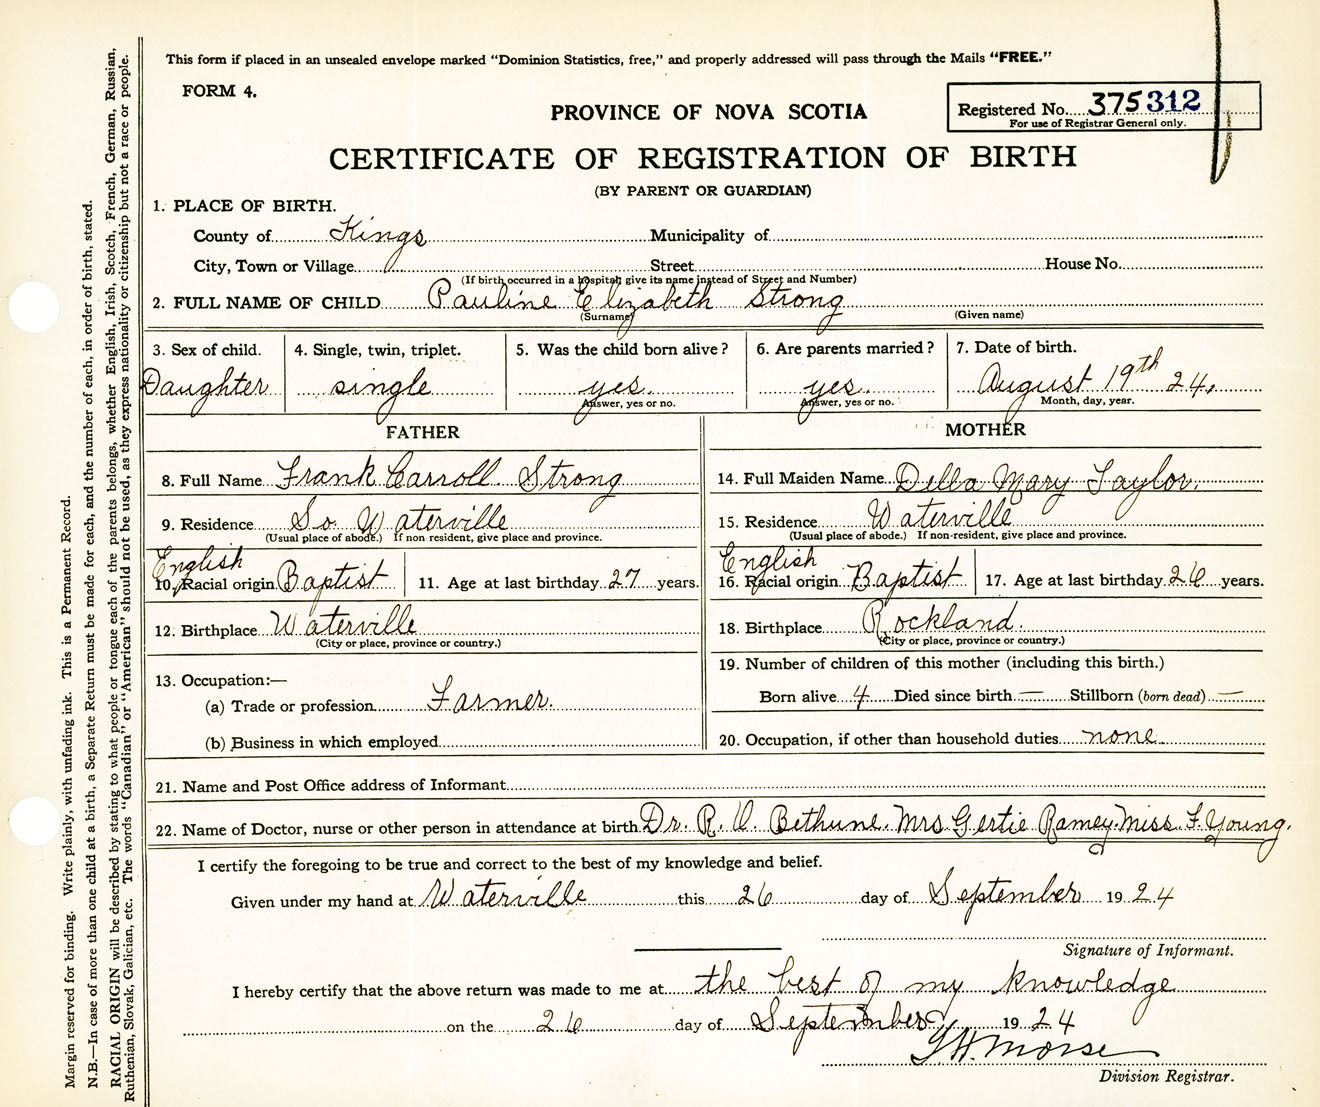 This form if placed in an unsealed envelope marked "Dominion Statistics, free," and properly addressed will pass through the Mails "FREE."
FORM 4.
Registered No. 375312
For use of Registrar General only.
PROVINCE OF NOVA SCOTIA
CERTIFICATE OF REGISTRATION OF BIRTH
(BY PARENT OR GUARDIAN)
1. PLACE OF BIRTH.
County of Kings Municipality of
City, Town or Village Street House No.
(If birth occurred in a hospital give its name instead of Street and Number)
2. FULL NAME OF CHILD Pauline Elizabeth Strong
(Surname) (Given name)
3. Sex of child. 4. Single, twin, triplet. 5. Was the child born alive? 6. Are parents married? 7. Date of birth.
Daughter single yes. yes. August 19th 24.
Answer, yes or no. Answer, yes or no. Month, day, year.
FATHER
8. Full Name Frank Carroll Strong
9. Residence So. Waterville
(Usual place of abode.) If non resident, give place and province.
English
10. Racial origin Baptist 11. Age at last birthday 27 years.
12. Birthplace Waterville
(City or place, province or country.)
13. Occupation:—
(a) Trade or profession Farmer.
(b) Business in which employed
MOTHER
14. Full Maiden Name Della Mary Taylor.
15. Residence Waterville
(Usual place of abode.) If non-resident, give place and province.
English
16. Racial origin Baptist 17. Age at last birthday 26 years.
18. Birthplace Rockland.
(City or place, province or country.)
19. Number of children of this mother (including this birth.)
Born alive 4 Died since birth — Stillborn (born dead) —
20. Occupation, if other than household duties none
21. Name and Post Office address of Informant
22. Name of Doctor, nurse or other person in attendance at birth Dr. R. O. Bethune. Mrs Gertie Ramey. Miss F. Young.
I certify the foregoing to be true and correct to the best of my knowledge and belief.
Given under my hand at Waterville this 26 day of September 1924
Signature of Informant.
I hereby certify that the above return was made to me at the best of my knowledge
on the 26 day of September 1924
Morse
Division Registrar.
Margin reserved for binding. Write plainly, with unfading ink. This is a Permanent Record.
N.B.—In case of more than one child at a birth, a Separate Return must be made for each, and the number of each, in order of birth, stated.
RACIAL ORIGIN will be described by stating to what people or tongue each of the parents belongs, whether English, Irish, Scotch, French, German, Russian,
Ruthenian, Slovak, Galician, etc. The words "Canadian" or "American" should not be used, as they express nationality or citizenship but not a race or people.